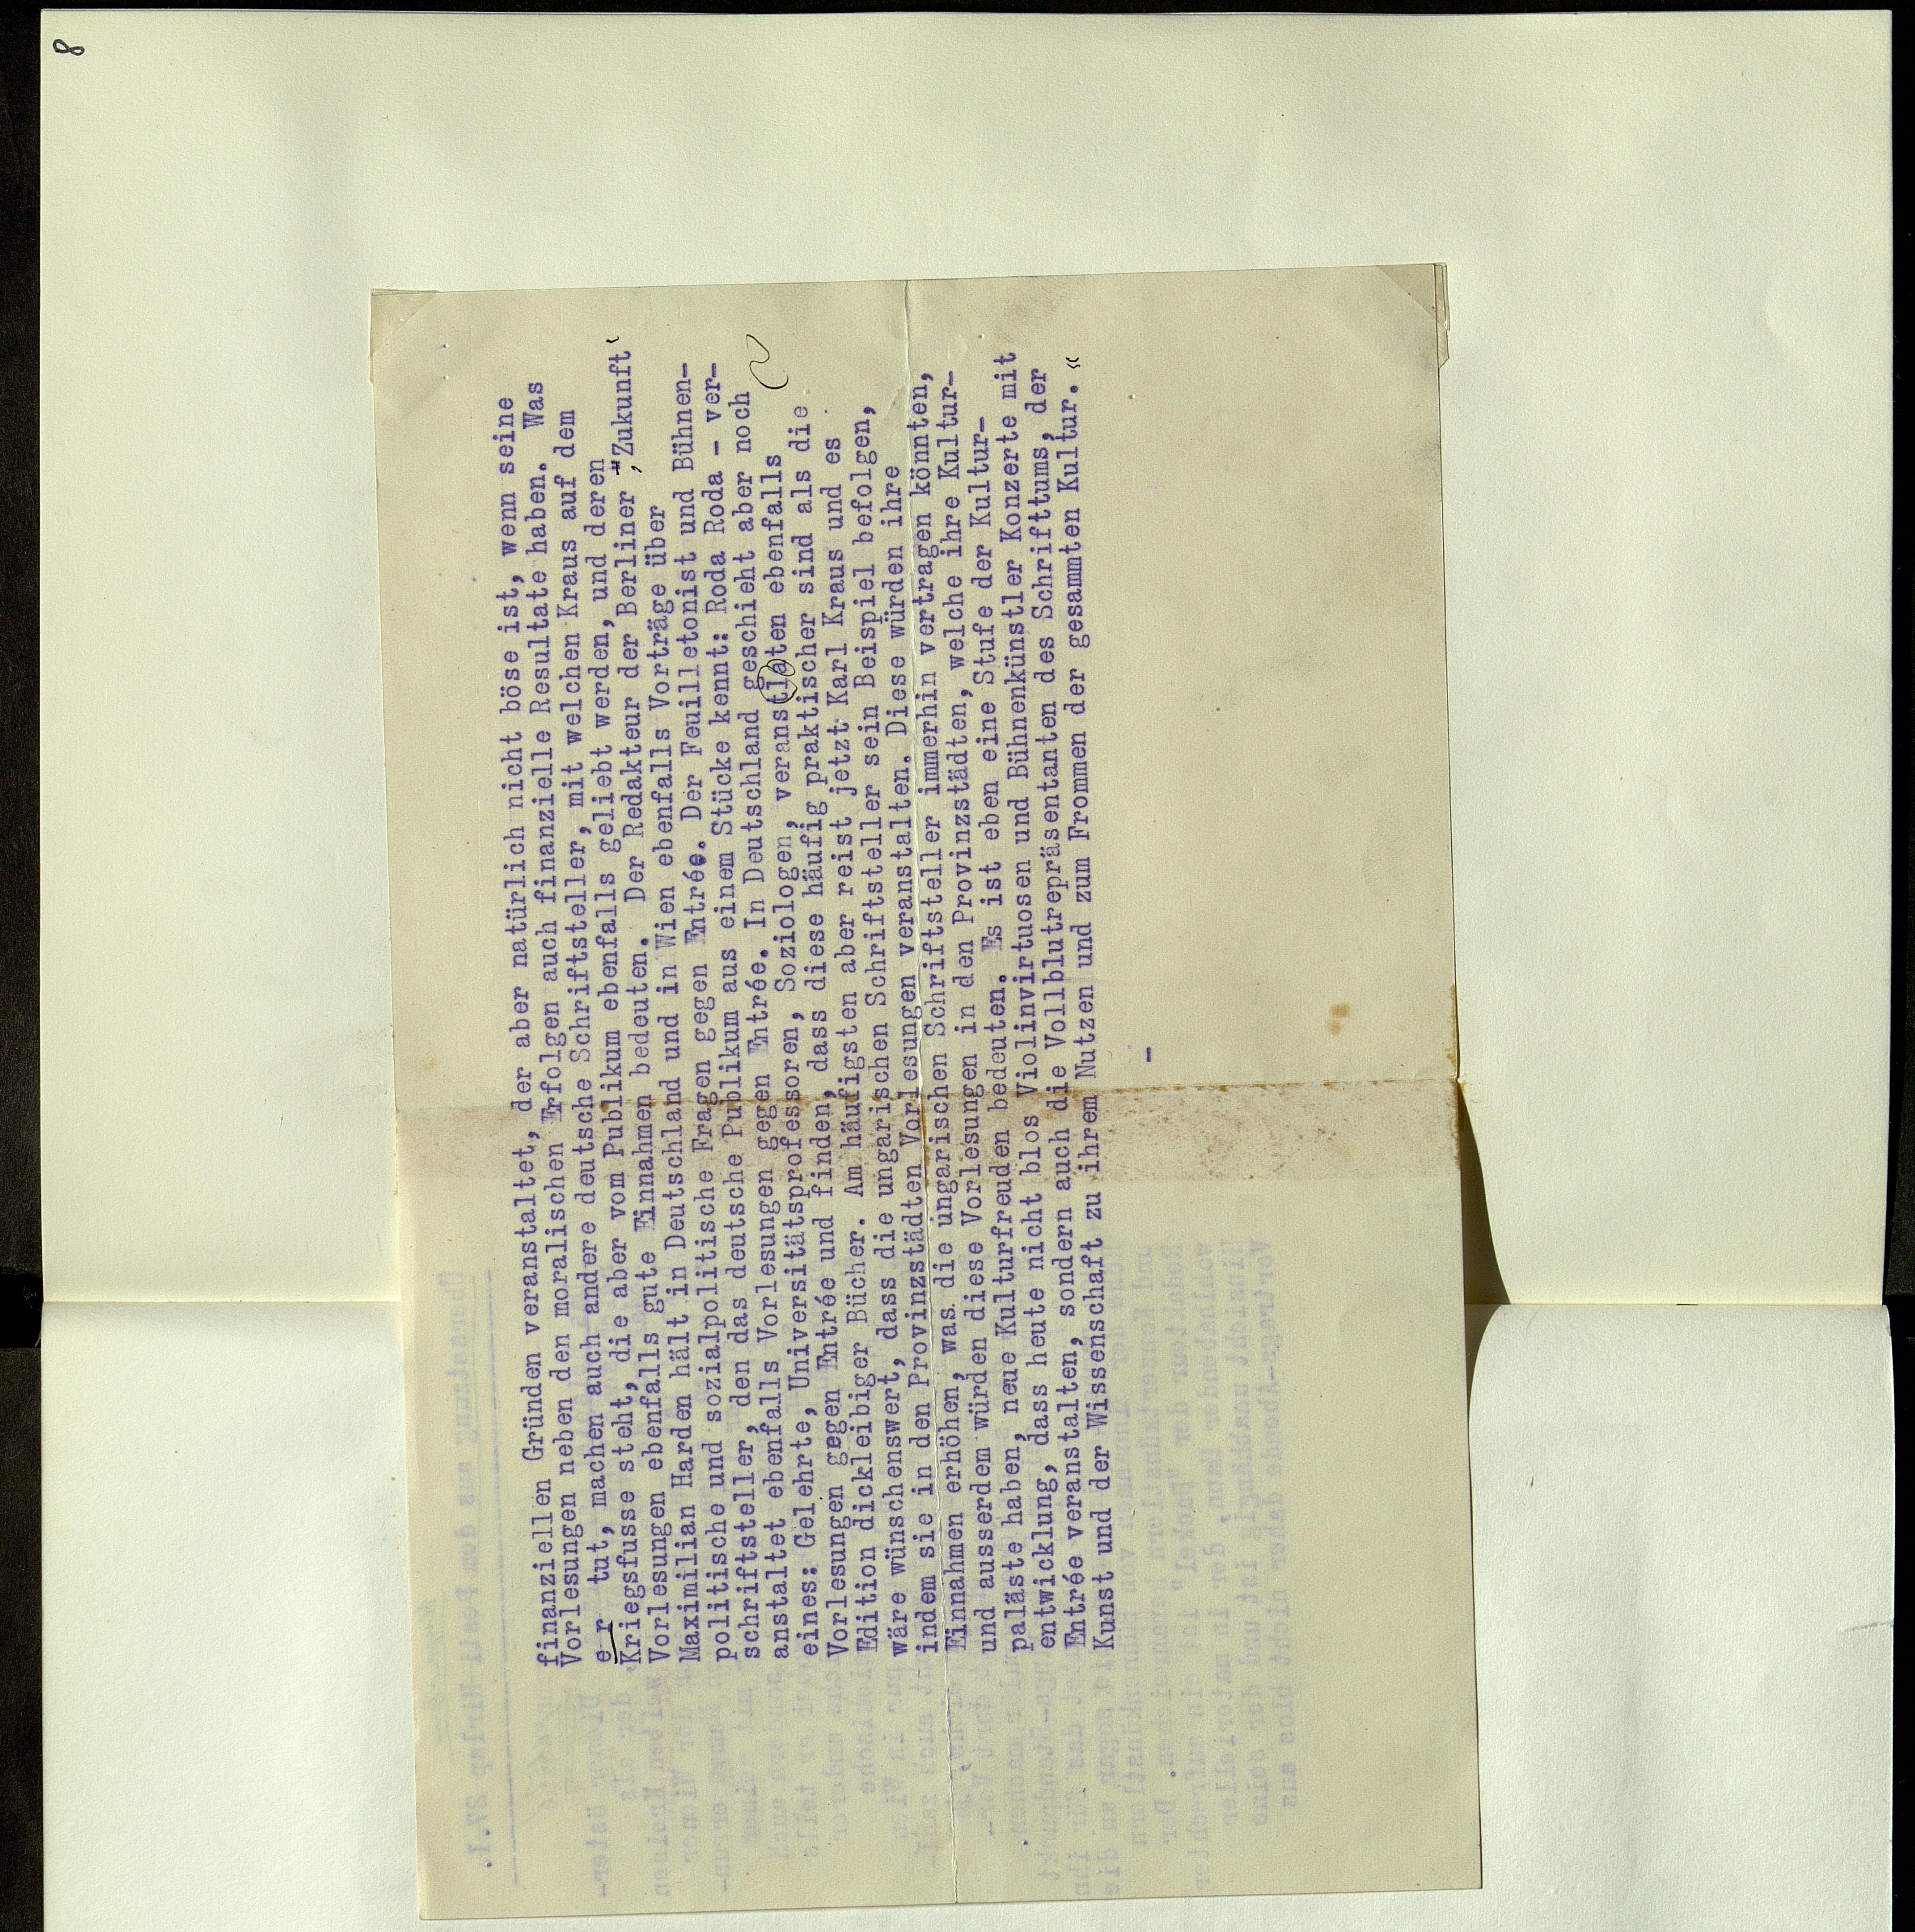 8
finanziellen Gründen veranstaltet, der aber natürlich nicht böse ist, wenn seine
Vorlesungen neben den moralischen Erfolgen auch finanzielle Resultate haben. Was
er tut, machen auch andere deutsche Schriftsteller, mit welchen Kraus auf dem
Kriegsfusse steht, die aber vom Publikum ebenfalls geliebt werden, und deren
Vorlesungen ebenfalls gute Einnahmen bedeuten. Der Redakteur der Berliner „Zukunft“
Maximilian Harden hält in Deutschland und in Wien ebenfalls Vorträge über
politische und sozialpolitische Fragen gegen Entrée. Der Feuilletonist und Bühnen-
schriftsteller, den das deutsche Publikum aus einem Stücke kennt: Roda Roda - ver-
anstaltet ebenfalls Vorlesungen gegen Entrée. In Deutschland geschieht aber noch
eines: Gelehrte, Universitätsprofessoren, Soziologen, veranstlaten ebenfalls
Vorlesungen gegen Entrée und finden, dass diese häufig praktischer sind als die
Edition dickleibiger Bücher. Am häufigsten aber reist jetzt Karl Kraus und es
wäre wünschenswert, dass die ungarischen Schriftsteller sein Beispiel befolgen,
indem sie in den Provinzstädten Vorlesungen veranstalten. Diese würden ihre
Einnahmen erhöhen, was die ungarischen Schriftsteller immerhin vertragen könnten,
und ausserdem würden diese Vorlesungen in den Provinzstädten, welche ihre Kultur-
paläste haben, neue Kulturfreuden bedeuten. Es ist eben eine Stufe der Kultur-
entwicklung, dass heute nicht blos Violinvirtuosen und Bühnenkünstler Konzerte mit
Entrée veranstalten, sondern auch die Vollblutrepräsentanten des Schrifttums, der
Kunst und der Wissenschaft zu ihrem Nutzen und zum Frommen der gesammten Kultur.“
-